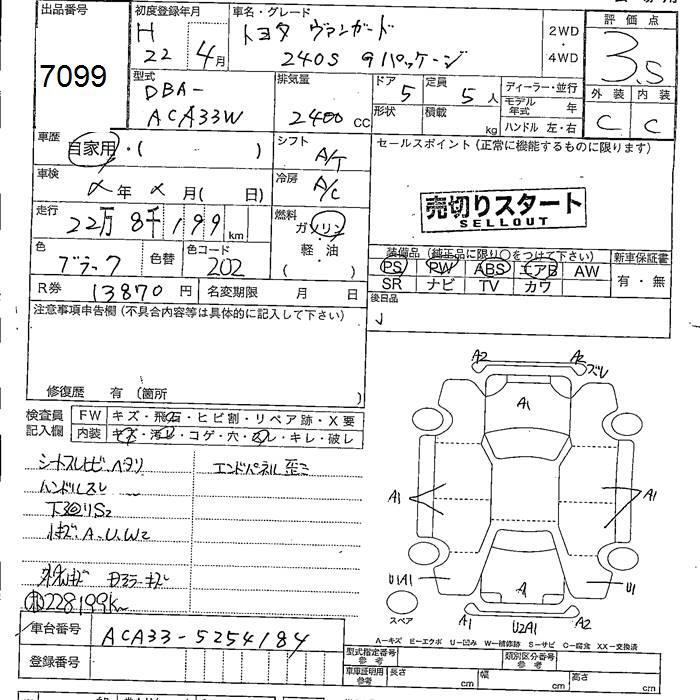 出品番号
7099
初度登録年月
H
22 年 4月
車名・グレード
トヨタ ヴァンガード
240S Gパッケージ
2WD
・
4WD
評価点
3.5
外装 内装
C C
型式
DBA-
ACA33W
排気量
2400 CC
ドア
5
定員
5人
形状
積載
kg
ディーラー・並行
モデル年式 年
ハンドル 左・右
車歴
自家用・( )
シフト
A/T
セールスポイント(正常に機能するものに限ります)
売切りスタート
SELLOUT
車検
年 月( 日)
冷房
A/C
走行
22万8千199km
燃料
ガソリン
・
軽・油
( )
色
ブラック
色替
色コード
202
装備品(純正品に限り○をつけて下さい)
PS PW ABS エアB AW
SR ナビ TV カワ
新車保証書
有・無
R券 13870円
名変期限 月 日
後日品
注意事項申告欄(不具合内容等は具体的に記入して下さい)
修復歴 有(箇所
検査員
記入欄
FW キズ・飛石・ヒビ割・リペア跡・X要
内装 キズ・汚レ・コゲ・穴・スレ・キレ・破レ
シートスレヒビ、ヘタリ
エンドパネル歪ミ
ハンドルスレ
下廻りS2
A.U.W2
228199km
A2 A2 ズレ
A1
A1 A1
U1A1 A U1
スペア
A1 U2A1 A2
A-キズ E-エクボ U-凹み W-補修跡 S-サビ C-腐食 XX-交換済
車台番号
ACA33-5254184
登録番号
型式指定番号
参考
類別区分番号
参考
車庫証明用
参考
長さ cm
幅 cm
高さ cm